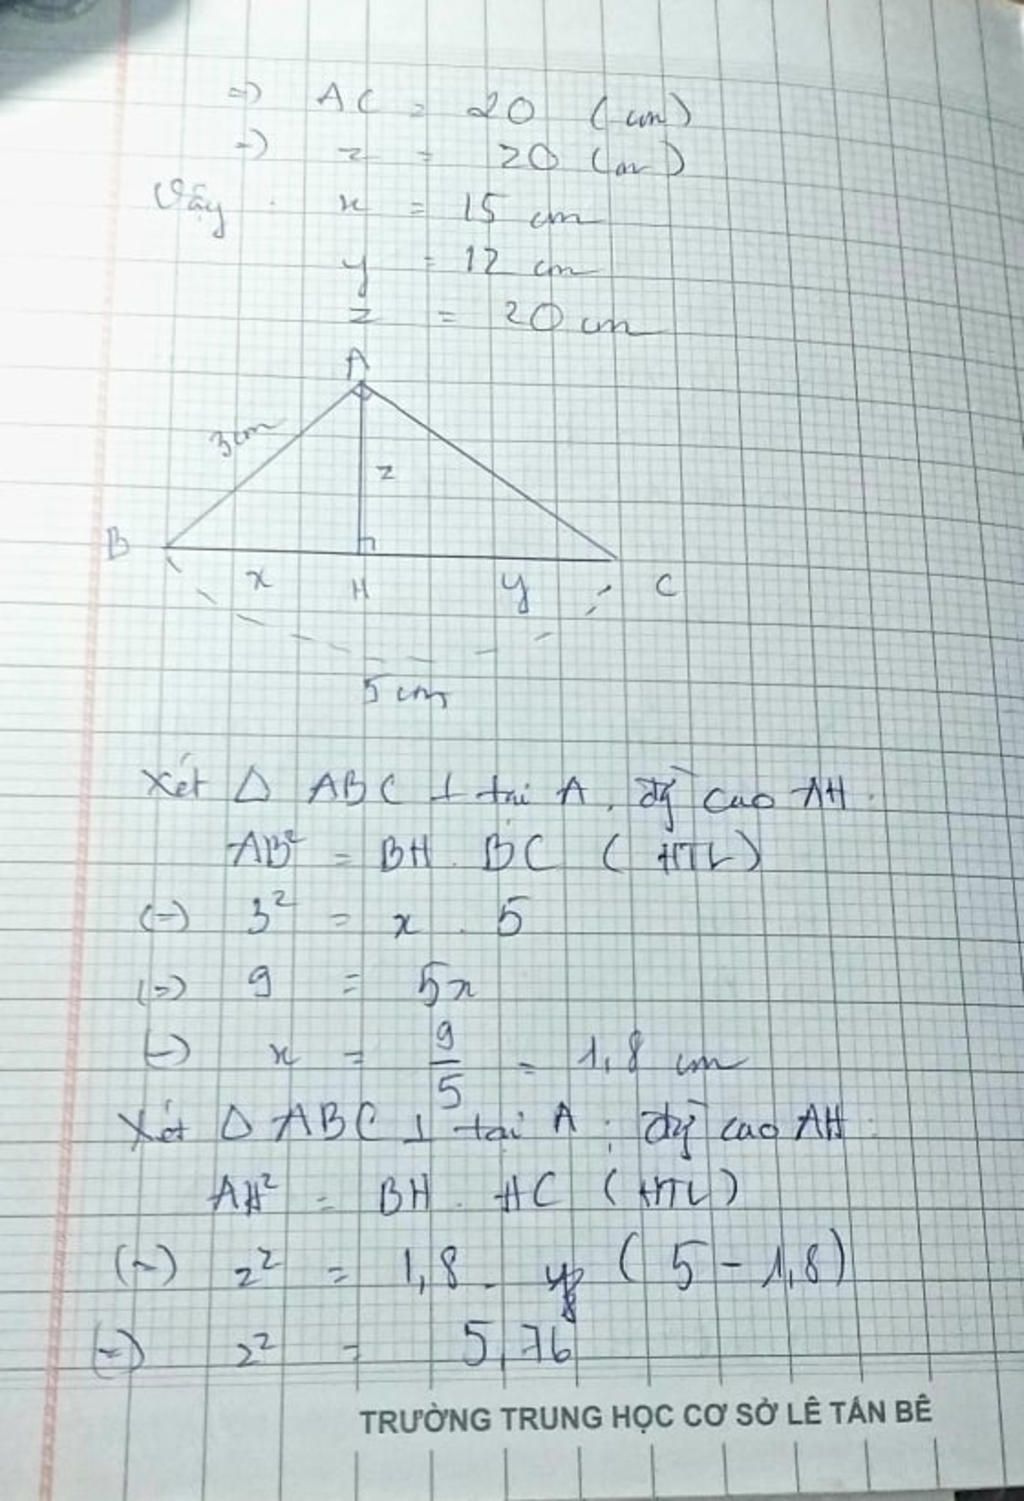 => AC = 20 (cm)
=> z = 20 (cm)
Vậy : x = 15 cm
y = 12 cm
z = 20 cm
A
3cm
z
B
x H y C
5 cm
Xét △ ABC ⊥ tại A, đg̀ cao AH :
AB² = BH . BC (HTL)
(=) 3² = x . 5
(=) 9 = 5x
(=) x = 9/5 = 1,8 cm
Xét △ ABC ⊥ tại A ; đg̀ cao AH :
AH² = BH . HC (HTL)
(=) z² = 1,8 . (5 - 1,8)
(=) z² = 5,76
TRƯỜNG TRUNG HỌC CƠ SỞ LÊ TẤN BÊ